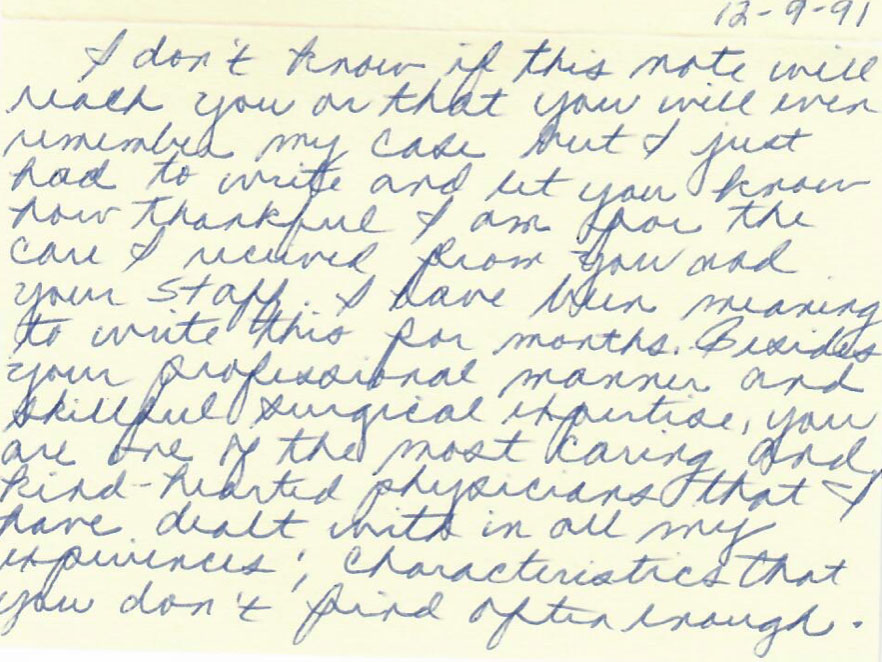 12-9-91
I don't know if this note will
reach you or that you will even
remember my case but I just
had to write and let you know
how thankful I am for the
care I received from you and
your staff. I have been meaning
to write this for months. Besides
your professional manner and
skillful surgical expertise, you
are one of the most caring and
kind-hearted physicians that I
have dealt with in all my
experiences; characteristics that
you don't find often enough.